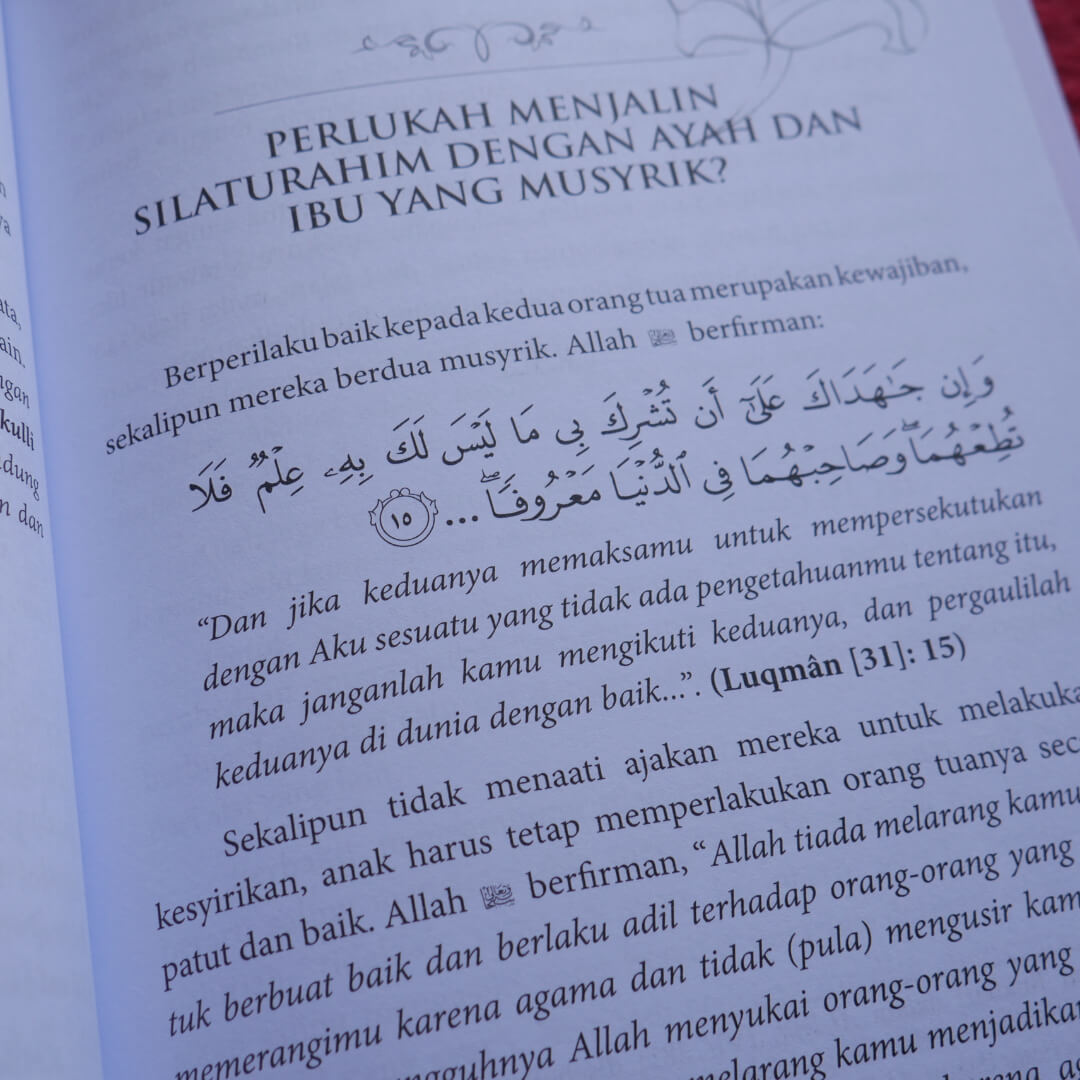 PERLUKAH MENJALIN
SILATURAHIM DENGAN AYAH DAN
IBU YANG MUSYRIK?
Berperilaku baik kepada kedua orang tua merupakan kewajiban,
sekalipun mereka berdua musyrik. Allah ﷻ berfirman:
وَإِن جَٰهَدَاكَ عَلَىٰٓ أَن تُشۡرِكَ بِي مَا لَيۡسَ لَكَ بِهِۦ عِلۡمٞ فَلَا
تُطِعۡهُمَاۖ وَصَاحِبۡهُمَا فِي ٱلدُّنۡيَا مَعۡرُوفٗاۖ ... ١٥
“Dan jika keduanya memaksamu untuk mempersekutukan
dengan Aku sesuatu yang tidak ada pengetahuanmu tentang itu,
maka janganlah kamu mengikuti keduanya, dan pergaulilah
keduanya di dunia dengan baik...”. (Luqmân [31]: 15)
Sekalipun tidak menaati ajakan mereka untuk melakuka
kesyirikan, anak harus tetap memperlakukan orang tuanya sec
patut dan baik. Allah berfirman, “Allah tiada melarang kamu
tuk berbuat baik dan berlaku adil terhadap orang-orang yang
memerangimu karena agama dan tidak (pula) mengusir kam
ngguhnya Allah menyukai orang-orang yang
melarang kamu menjadikan
kulli
dung
n dan
ngan
ain.
ata,